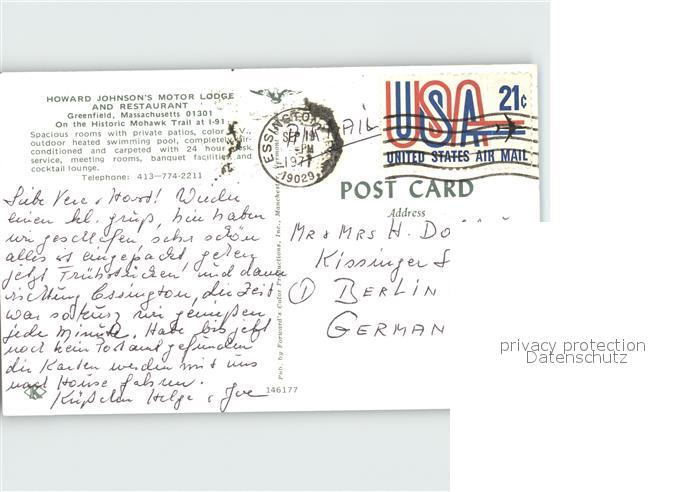 HOWARD JOHNSON'S MOTOR LODGE
AND RESTAURANT
Greenfield, Massachusetts 01301
On the Historic Mohawk Trail at I-91
Spacious rooms with private patios, color T.V.,
outdoor heated swimming pool, completely air-
conditioned and carpeted with 24 hour desk
service, meeting rooms, banquet facilities and
cocktail lounge.
Telephone: 413-774-2211
Liebe Vera + Horst! Wieder
einen kl. gruß, hier haben
wir geschlafen, sehr schön
alles ist eingepackt, gehen
jetzt Frühstücken und dann
richtung Essington, die Zeit
war so kurz wir genießen
jede Minute. Habe bis jetzt
noch kein Postamt gefunden
die Karten werden mit uns
nach Hause fahren.
Küßchen Helga +
146177
Pub. by Forward's Color Productions, Inc., Manchester, Vermont
ESSINGTON
SEP
PM
1977
19029
AIL
USA 21c
UNITED STATES AIR MAIL
POST CARD
Address
MR & MRS H. Do
Kissinger S
1 BERLIN
GERMAN
privacy protection
Datenschutz